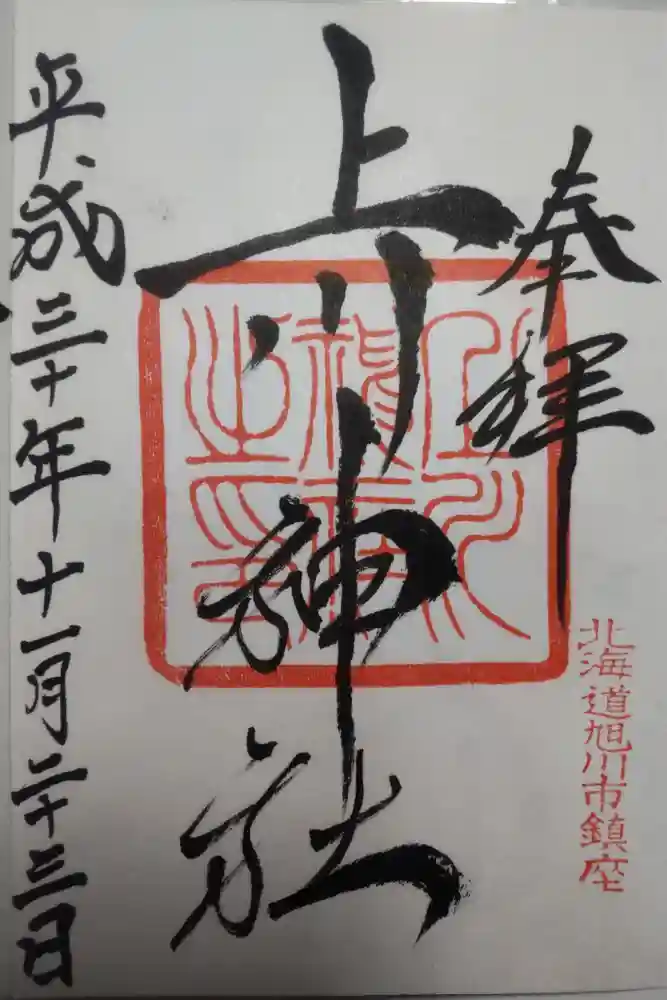 奉拝
北海道旭川市鎮座
上川神社
上川神社之印
平成三十年十一月二十三日